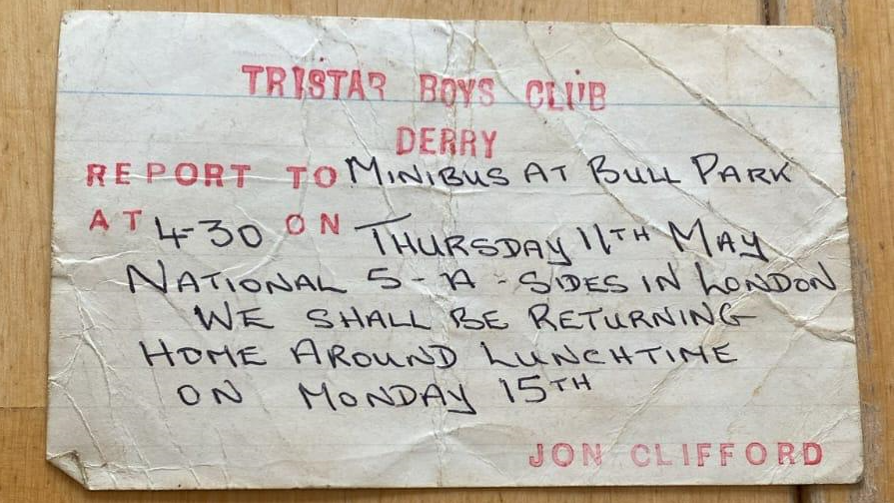 TRISTAR BOYS CLUB
DERRY
REPORT TO MINIBUS AT BULL PARK
AT 4-30 ON THURSDAY 11TH MAY
NATIONAL 5-A-SIDES IN LONDON
WE SHALL BE RETURNING
HOME AROUND LUNCHTIME
ON MONDAY 15TH
JON CLIFFORD